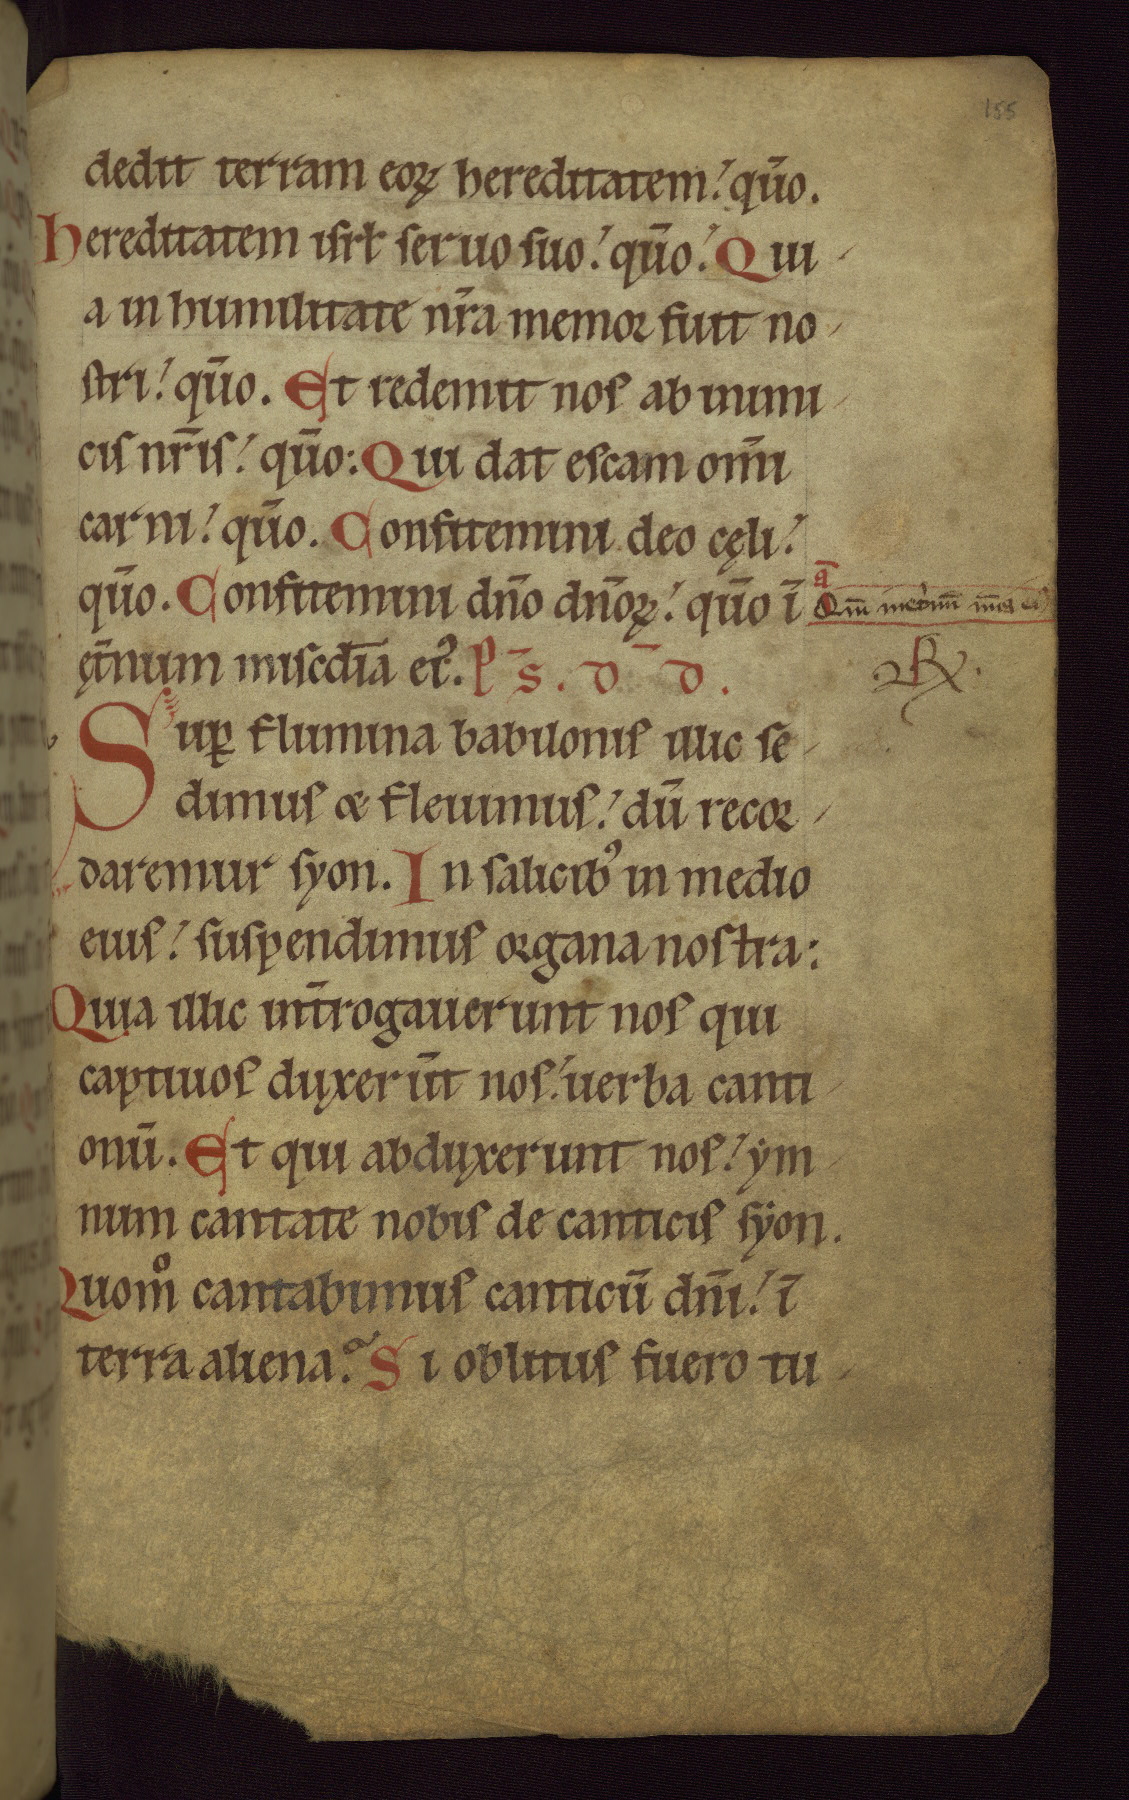 155
dedit terram eoꝝ hereditatem: qm̄o.
Hereditatem isrl̄ seruo suo: qūo: Qui
a in humilitate nr̄a memor fuit no
stri: qūo. Et redemit nos ab inimi
cis nr̄is: qūo: Qui dat escam om̄i
carni: qūo. Confitemini deo cęli:
qūo. Confitemini dn̄o dn̄oꝝ: qūo ī
ęt̄num misc̄dia ei᾽. p̄s. dd.
ā
Qm̄
Suꝑ flumina babilonis illic se
dimus & fleuimus: dū recor
daremur syon. In salicib᾽ in medio
eius: suspendimus organa nostra:
Quia illic int̄rogauerunt nos qui
captiuos duxer̄ūt nos: uerba canti
onū. Et qui abduxerunt nos: ym
num cantate nobis de canticis syon.
Quom̊ cantabimus canticū dn̄i: ī
terra aliena? Si oblitus fuero tu